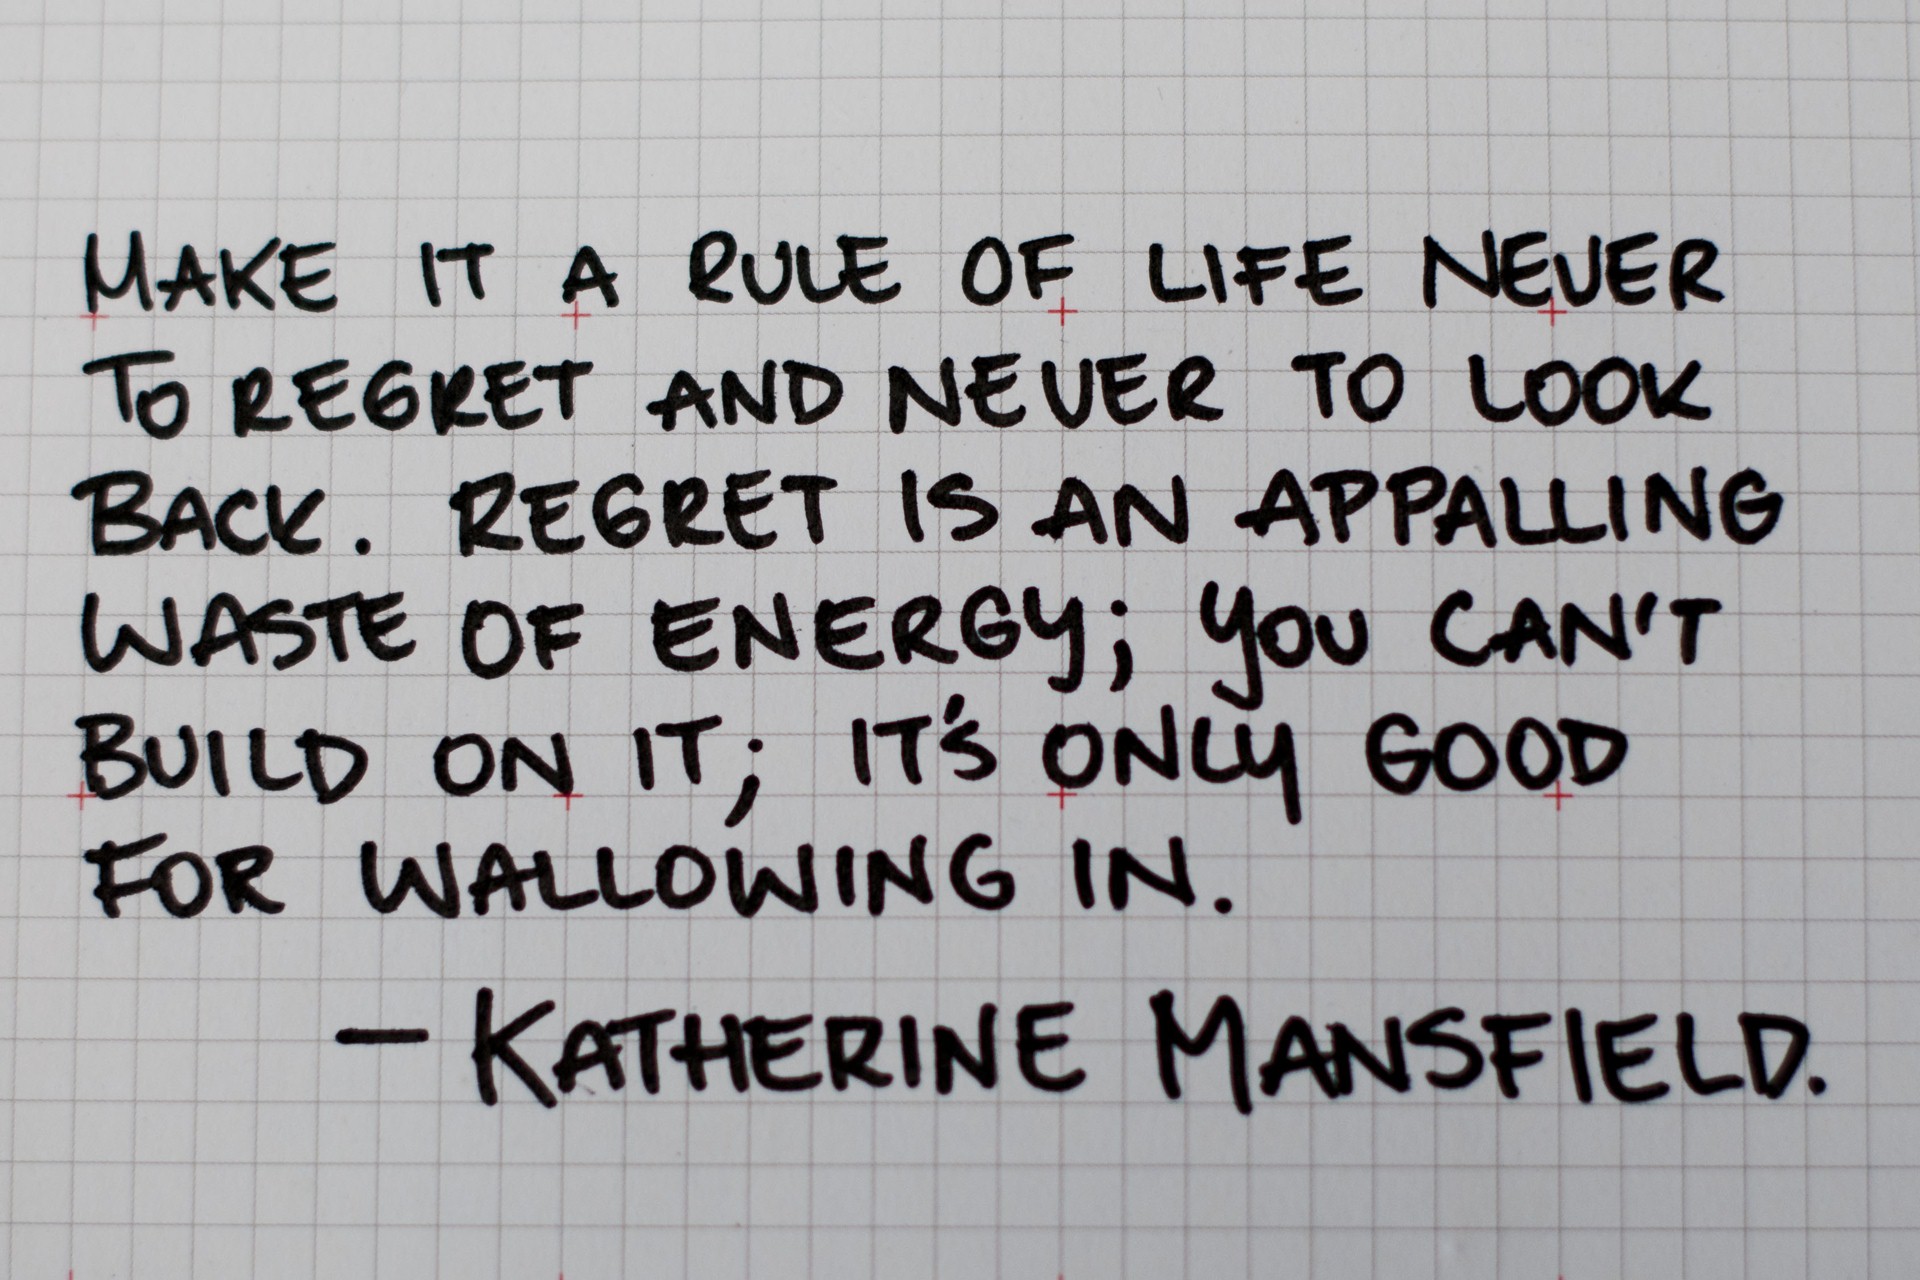 MAKE IT A RULE OF LIFE NEVER
TO REGRET AND NEVER TO LOOK
BACK. REGRET IS AN APPALLING
WASTE OF ENERGY; YOU CAN'T
BUILD ON IT; IT'S ONLY GOOD
FOR WALLOWING IN.
— KATHERINE MANSFIELD.